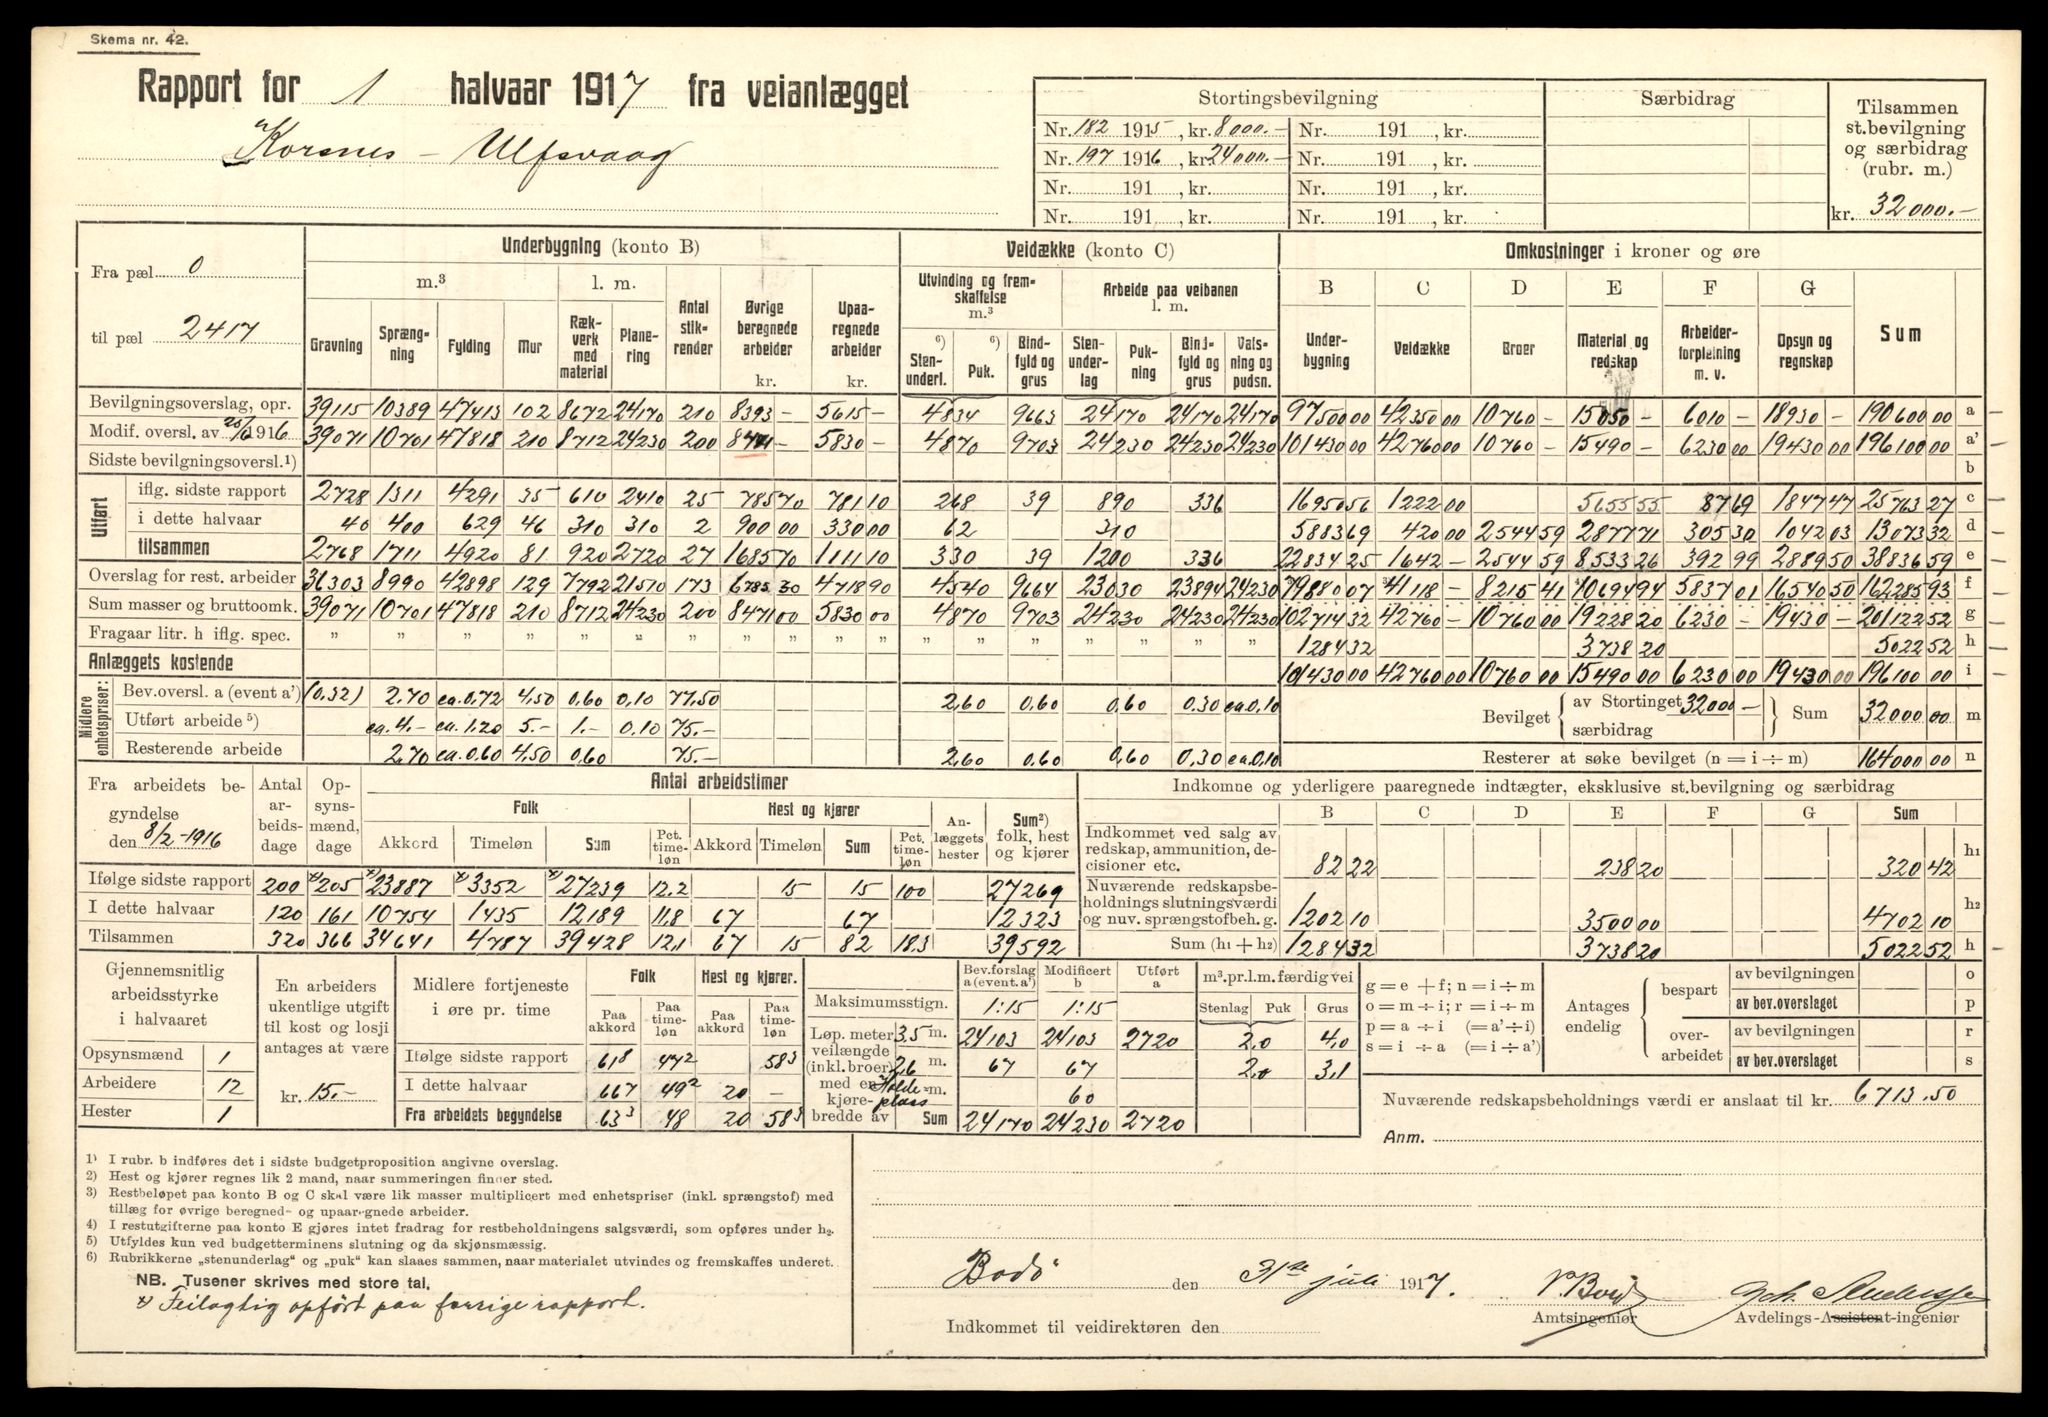 Skema nr. 42.
Rapport for 1 halvaar 1917 fra veianlægget
Korsnes - Ulfsvaag
Stortingsbevilgning Særbidrag Tilsammen st.bevilgning og særbidrag (rubr. m.)
Nr. 182 1915, kr. 8000.- Nr. 191 , kr.
Nr. 197 1916 kr. 24000.- Nr. 191 , kr.
Nr. 191 , kr. Nr. 191 , kr.
Nr. 191 , kr. Nr. 191 , kr. kr. 32000.-
Fra pæl 0
til pæl 2417
Underbygning (konto B) Veidække (konto C) Omkostninger i kroner og øre
m.³ l. m. Utvinding og fremskaffelse m.³ Arbeide paa veibanen l. m. B C D E F G
Gravning Sprængning Fylding Mur Rækverk med material Planering Antal stikrender Øvrige beregnede arbeider kr. Upaaregnede arbeider kr. Stenunderl. ⁶) Puk. ⁶) Bindfyld og grus Stenunderlag Pukning Bindfyld og grus Valsning og pudsn. Underbygning Veidække Broer Material og redskap Arbeiderforpleining m. v. Opsyn og regnskap Sum
Bevilgningsoverslag, opr. 39115 10389 47413 102 8672 24170 210 8393 - 5615 - 4834 9663 24170 24170 24170 97500 00 42350 00 10760 - 15050 - 6010 - 18930 - 190600 00 a
Modif. oversl. av 25/6 1916 39071 10701 47818 210 8712 24230 200 8471 - 5830 - 4870 9703 24230 24230 24230 101430 00 42760 00 10760 - 15490 - 6230 00 19430 00 196100 00 a'
Sidste bevilgningsoversl.¹) b
Utført
iflg. sidste rapport 2728 1311 4291 35 610 2410 25 785 70 781 10 268 39 890 336 16950 56 1222 00 5655 55 87 69 1847 47 25763 27 c
i dette halvaar 40 400 629 46 310 310 2 900 00 330 00 62 310 5883 69 420 00 2544 59 2877 71 305 30 1042 03 13073 32 d
tilsammen 2768 1711 4920 81 920 2720 27 1685 70 1111 10 330 39 1200 336 22834 25 1642 - 2544 59 8533 26 392 99 2889 50 38836 59 e
Overslag for rest. arbeider 36303 8990 42898 129 7792 21510 173 6785 30 4718 90 4540 9664 23030 23894 24230 79880 07 41118 - 8215 41 10694 94 5837 01 16540 50 162285 93 f
Sum masser og bruttoomk. 39071 10701 47818 210 8712 24230 200 8471 00 5830 00 4870 9703 24230 24230 24230 102714 32 42760 - 10760 00 19228 20 6230 - 19430 - 201122 52 g
Fragaar litr. h iflg. spec. " " " " " " " " " " " " " " 1284 32 3738 20 5022 52 h
Anlæggets kostende 101430 00 42760 00 10760 00 15490 00 6230 00 19430 00 196100 00 i
Midlere enhetspriser:
Bev.oversl. a (event a') (0,32) 2.70 ca.0.72 4,50 0,60 0,10 77,50 2,60 0,60 0,60 0,30 ca.0,10
Utført arbeide ⁵) ca. 4.- ca. 1.20 5.- 1.- 0.10 75.-
Resterende arbeide 2,70 ca.0.60 4,50 0,60 75.- 2,60 0,60 0,60 0,30 ca.0,10
Bevilget { av Stortinget 32000 - særbidrag } Sum 32000,00 m
Resterer at søke bevilget (n = i ÷ m) 164000 00 n
Fra arbeidets begyndelse den 8/2 - 1916
Antal arbeidsdage Opsynsmænd, dage Antal arbeidstimer
Folk Hest og kjører Anlæggets hester Sum²) folk, hest og kjører
Akkord Timeløn Sum Pct. timeløn Akkord Timeløn Sum Pct. timeløn
Ifølge sidste rapport 200 x) 205 x) 23887 x) 3352 x) 27239 12.2 15 15 100 27269
I dette halvaar 120 161 10754 1435 12189 11.8 67 67 12323
Tilsammen 320 366 34641 4787 39428 12,1 67 15 82 18.3 39592
Indkomne og yderligere paaregnede indtægter, eksklusive st.bevilgning og særbidrag
B C D E F G Sum
Indkommet ved salg av redskap, ammunition, decisioner etc. 82 22 238 20 320 42 h₁
Nuværende redskapsbeholdnings slutningsværdi og nuv. sprængstofbeh. g. 1202 10 3500 00 4702 10 h₂
Sum (h₁ + h₂) 1284 32 3738 20 5022 52 h
Gjennemsnitlig arbeidsstyrke i halvaaret
Opsynsmænd 1
Arbeidere 12
Hester 1
En arbeiders ukentlige utgift til kost og losji antages at være
kr. 15.-
Midlere fortjeneste i øre pr. time
Folk Hest og kjører.
Paa akkord Paa timeløn Paa akkord Paa timeløn
Ifølge sidste rapport 61⁸ 47² 58³
I dette halvaar 66⁷ 49² 20 -
Fra arbeidets begyndelse 63³ 48 20 58³
Bev.forslag a (event. a') Modificert b Utført a m³.pr.l.m.færdig vei
Maksimumsstign. 1:15 1:15 Stenlag Puk Grus
Løp. meter veilængde (inkl. broer) med en kjørebredde av
3.5 m. 24103 24103 2720 2.0 4.0
2,6 m. 67 67 2.0 3,1
Holdeplass m. 60
Sum 24170 24230 2720
g = e + f; n = i ÷ m
o = m ÷ i; r = i ÷ m
p = a ÷ i (= a' ÷ i)
s = i ÷ a (= i ÷ a')
Antages endelig
bespart av bevilgningen o
av bev.overslaget p
overarbeidet av bevilgningen r
av bev.overslaget s
Nuværende redskapsbeholdnings værdi er anslaat til kr. 6713.50
Anm.
1) I rubr. b indføres det i sidste budgetproposition angivne overslag.
2) Hest og kjører regnes lik 2 mand, naar summeringen finder sted.
3) Restbeløpet paa konto B og C skal være lik masser multiplicert med enhetspriser (inkl. sprængstof) med tillæg for øvrige beregned- og upaaregnede arbeider.
4) I restutgifterne paa konto E gjøres intet fradrag for restbeholdningens salgsværdi, som opføres under h₂.
5) Utfyldes kun ved budgetterminens slutning og da skjønsmæssig.
6) Rubrikkerne „stenunderlag" og „puk" kan slaaes sammen, naar materialet utvindes og fremskaffes underet.
NB. Tusener skrives med store tal.
x) Feilagtig opført paa forrige rapport.
Bodö den 31te juli 1917.
Indkommet til veidirektøren den
Amtsingeniør
Avdelings-Assistent-ingeniør